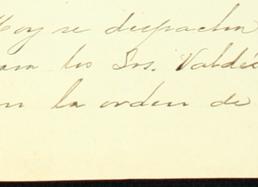 Hoy se despacha
para los Srs. Valdés
en la orden de